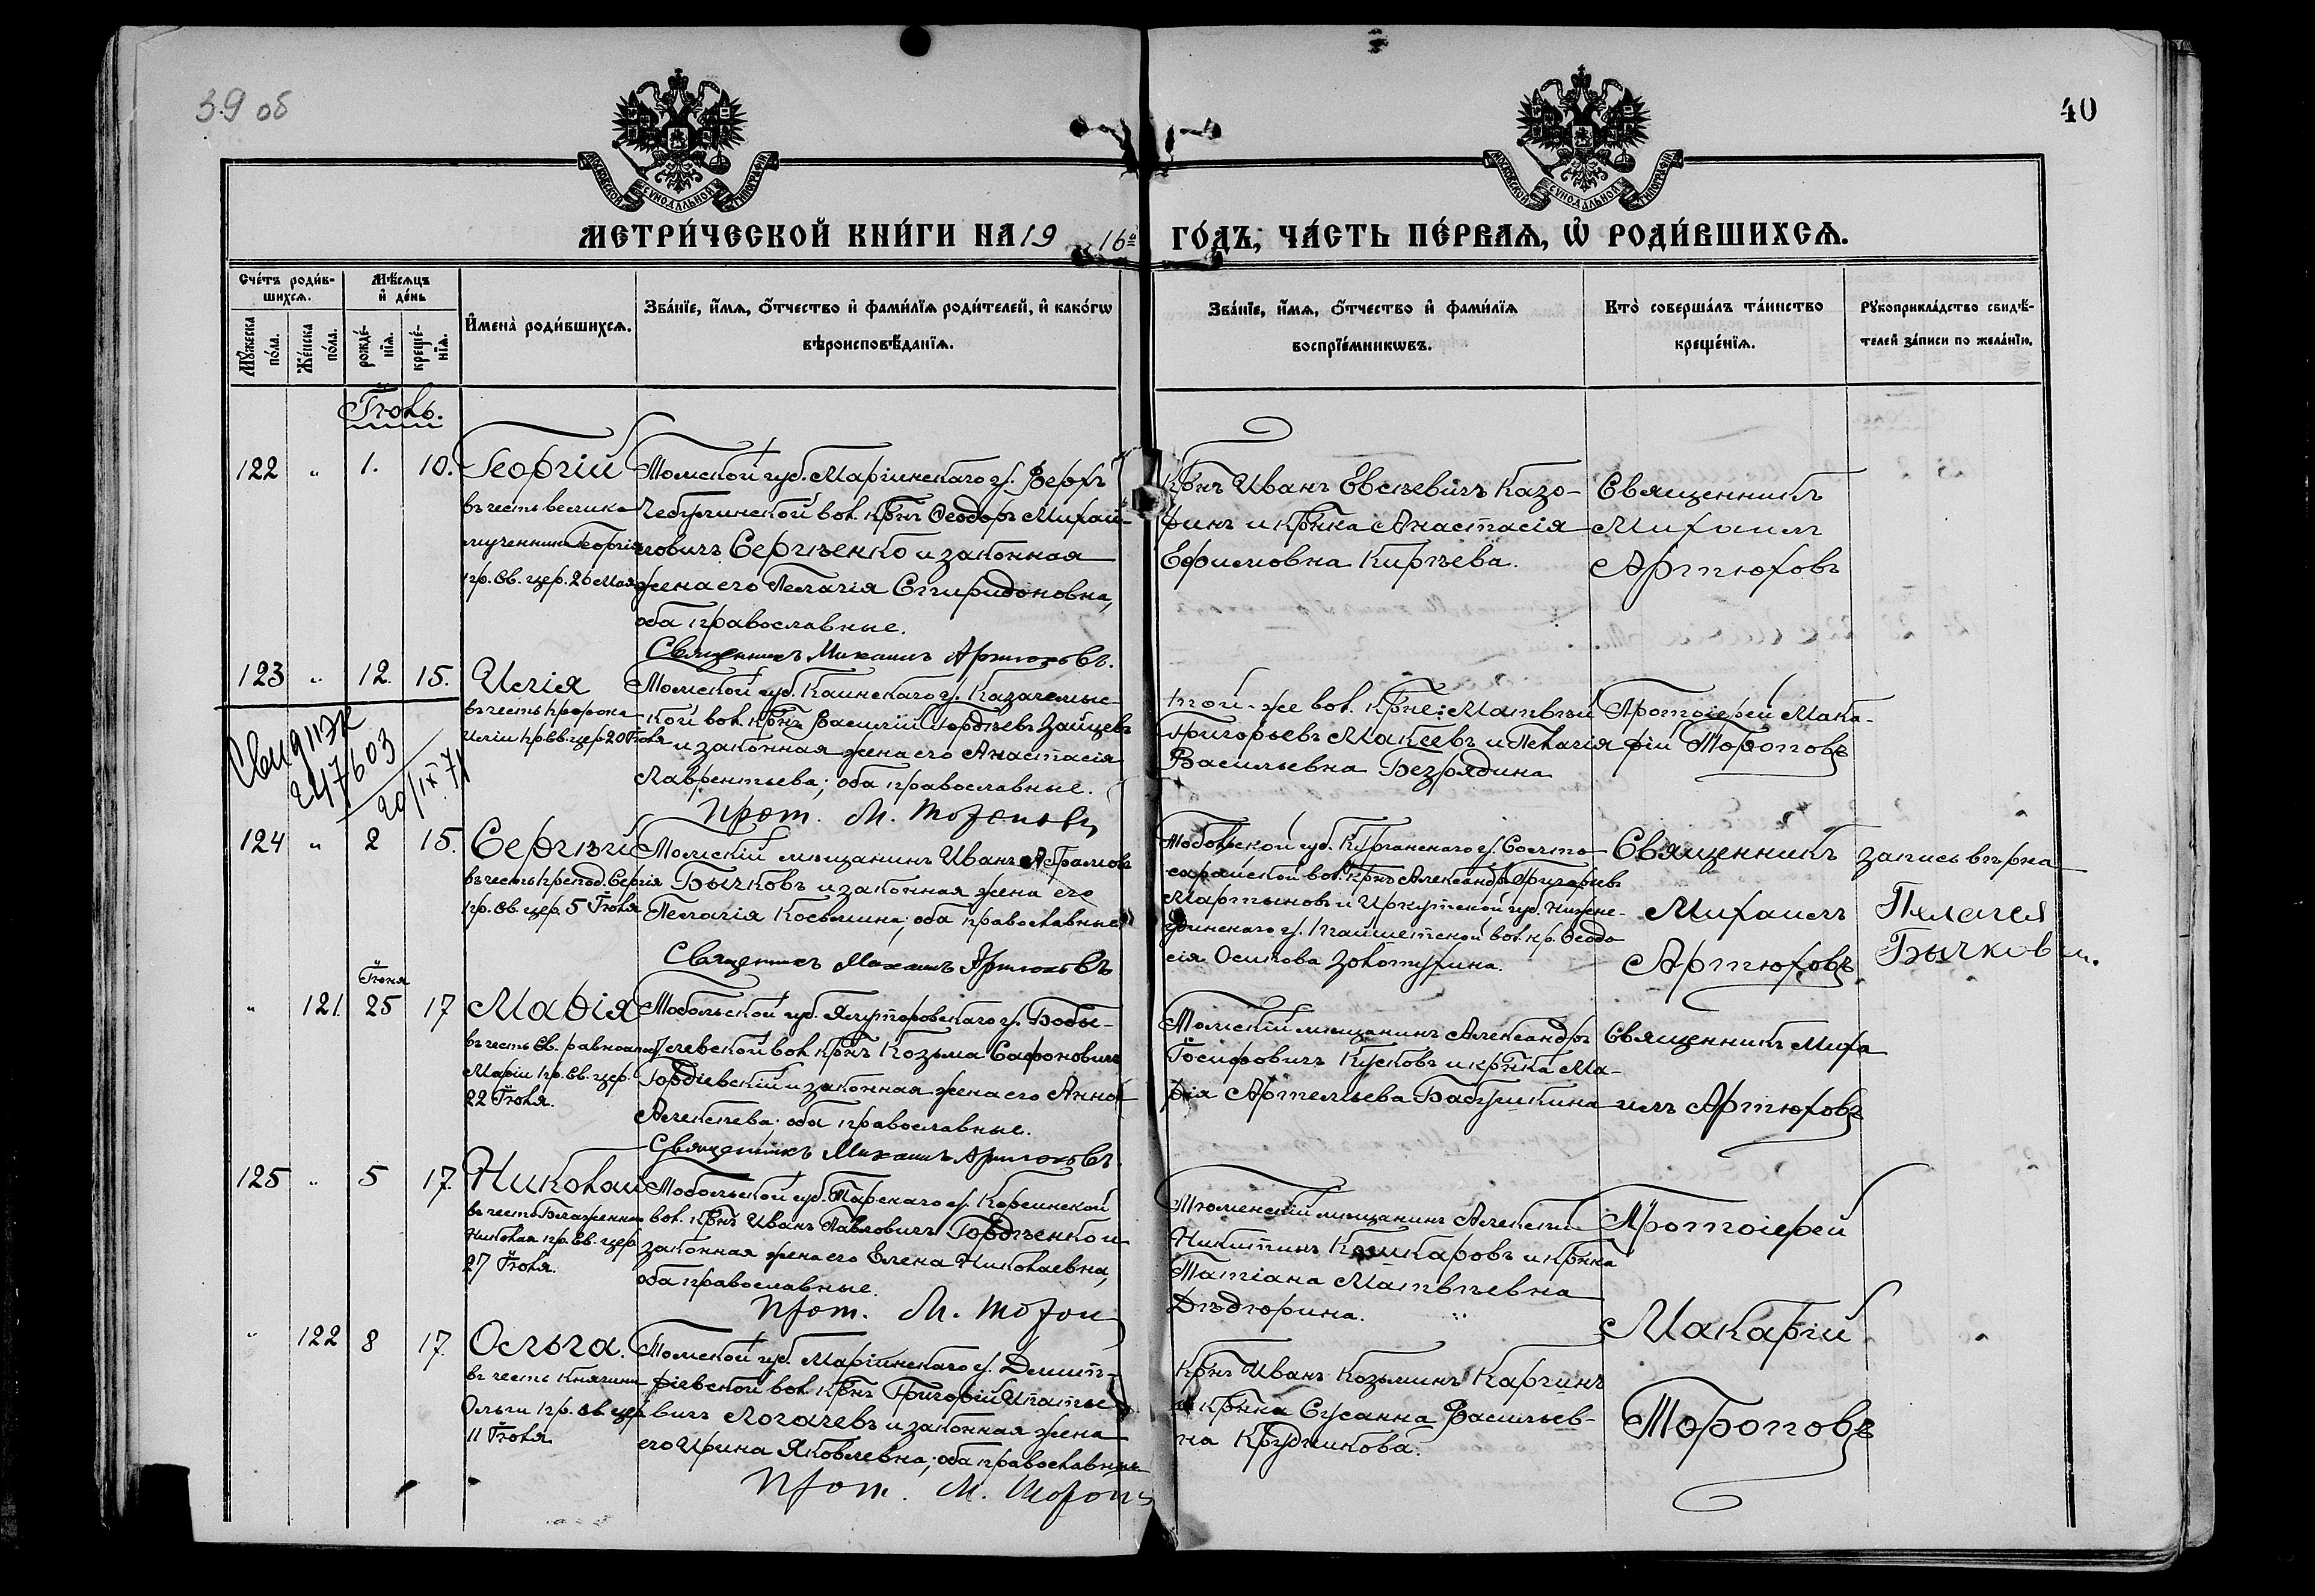 39 об
40
МОСКОВСКОЙ СѴНОДАЛЬНОЙ ТИПОГРАФІИ
МОСКОВСКОЙ СѴНОДАЛЬНОЙ ТИПОГРАФІИ
МЕТРИ́ЧЕСКОЙ КНИ́ГИ НА 1916 й ГО́ДЪ, ЧА́СТЬ ПЕ́РВАЯ, Ѡ҆ РОДИ́ВШИХСЯ.
Сче́тъ роди́в-
шихся.
Мѣ́сяцъ
и҆ де́нь
Мꙋ́жеска
по́ла.
Же́нска
по́ла.
рожде́-
нїя.
креще́-
нїя.
И҆мена̀ роди́вшихся.
Зва́нїе, и҆́мя, ѻ҆́тчество и҆ фами́лїя роди́телей, и҆ како́гѡ
вѣроисповѣ́данїя.
Зва́нїе, и҆́мя, ѻ҆́тчество и҆ фами́лїя
воспрїе́мникѡвъ.
Кто̀ соверша́лъ та́инство
креще́нїя.
Рꙋкоприкла́дство свидѣ́-
телей за́писи по жела́нїю.
Іюль.
122 " 1. 10.
Георгій
въ честь велико
мученника Георгія
пр. св. цер. 26 Мая
Томской губ. Маріинскаго у. Верхъ
Чебулинской вол. крнъ Ѳеодоръ Михай-
ловичъ Сергѣенко и законная
жена его Пелагія Спиридоновна,
оба православные.
Священникъ Михаилъ Артюховъ.
Крнъ Иванъ Евсѣевичъ Казо-
ринъ и крнка Анастасія
Ефимовна Кирѣева.
Священникъ
Михаилъ
Артюховъ
123 " 12. 15.
Свид II ЭК
247603
20/IX 71
Илія
въ честь пророка
Иліи пр св. цер 20 Іюля
Томской губ. Каинскаго у. Казачемыс-
кой вол. крнъ Василій Гордѣевъ Зайцевъ
и законная жена его Анастасія
Лаврентьева; оба православные.
Прот. М. Тороповъ
той-же вол. крне: Матвѣй
Григорьевъ Макеевъ и Пелагія
Васильевна Безрядина
Протоіерей Мака-
рій Торопов
124 " 2 15.
Сергѣй
въ честь препод. Сергія
пр. св. цер. 5 Іюля
Томскій мѣщанинъ Иванъ Абрамовъ
Бычковъ и законная жена его
Пелагія Косьмина; оба православные
Священникъ Михаилъ Артюховъ
Тобольской губ. Курганскаго у. Салто-
сарайской вол. крнъ Александръ Григорьев
Мартыновъ и Иркутской губ. Нижне-
удинскаго у. Тайшетской вол. кр. Ѳеодо
сія Осипова Золотухина.
Священникъ
Михаилъ
Артюховъ.
запись вѣрна
Пелагея
Бычкова.
Іюня
" 121. 25 17
Марія
въ честь св. равноап
Маріи пр. св. цер.
22 Іюля.
Тобольской губ. Ялуторовскаго у. Бобы-
левской вол. крнъ Козьма Сафоновичъ
Гордіевскій и законная жена его Анна
Алексѣева; оба православные.
Священникъ Михаилъ Артюховъ.
Томскій мѣщанинъ Александръ
Іосифовичъ Кусковъ и крнка Ма-
рія Артемьева Бабушкина
Священникъ Миха
илъ Артюховъ
125 " 5 17.
Николай
въ честь Блаженнаго
Николая пр. св. цер
27 Іюля.
Тобольской губ. Тарскаго у. Корсинской
вол. крнъ Иванъ Павловичъ Гордѣенко и
законная жена его Елена Николаевна,
оба православные.
Прот. М. Тороп
Тюменскій мѣщанинъ Алексѣй
Никитинъ Кошкаровъ и крнка
Татіана Матвѣевна
Дѣдюрина.
Протоіерей
Макарій
Торопов
" 122 8 17.
Ольга.
въ честь княгини
Ольги пр. св. цер
11 Іюля
Томской губ. Маріинскаго у. Дмит-
ріевской вол. крнъ Григорій Ипатье
вичъ Логачевъ и законная жена
его Ирина Яковлевна; оба православные
Прот. М. Тороп
Крнъ Иванъ Козьминъ Каргинъ
и крнка Сусанна Васильев-
на Крудникова.